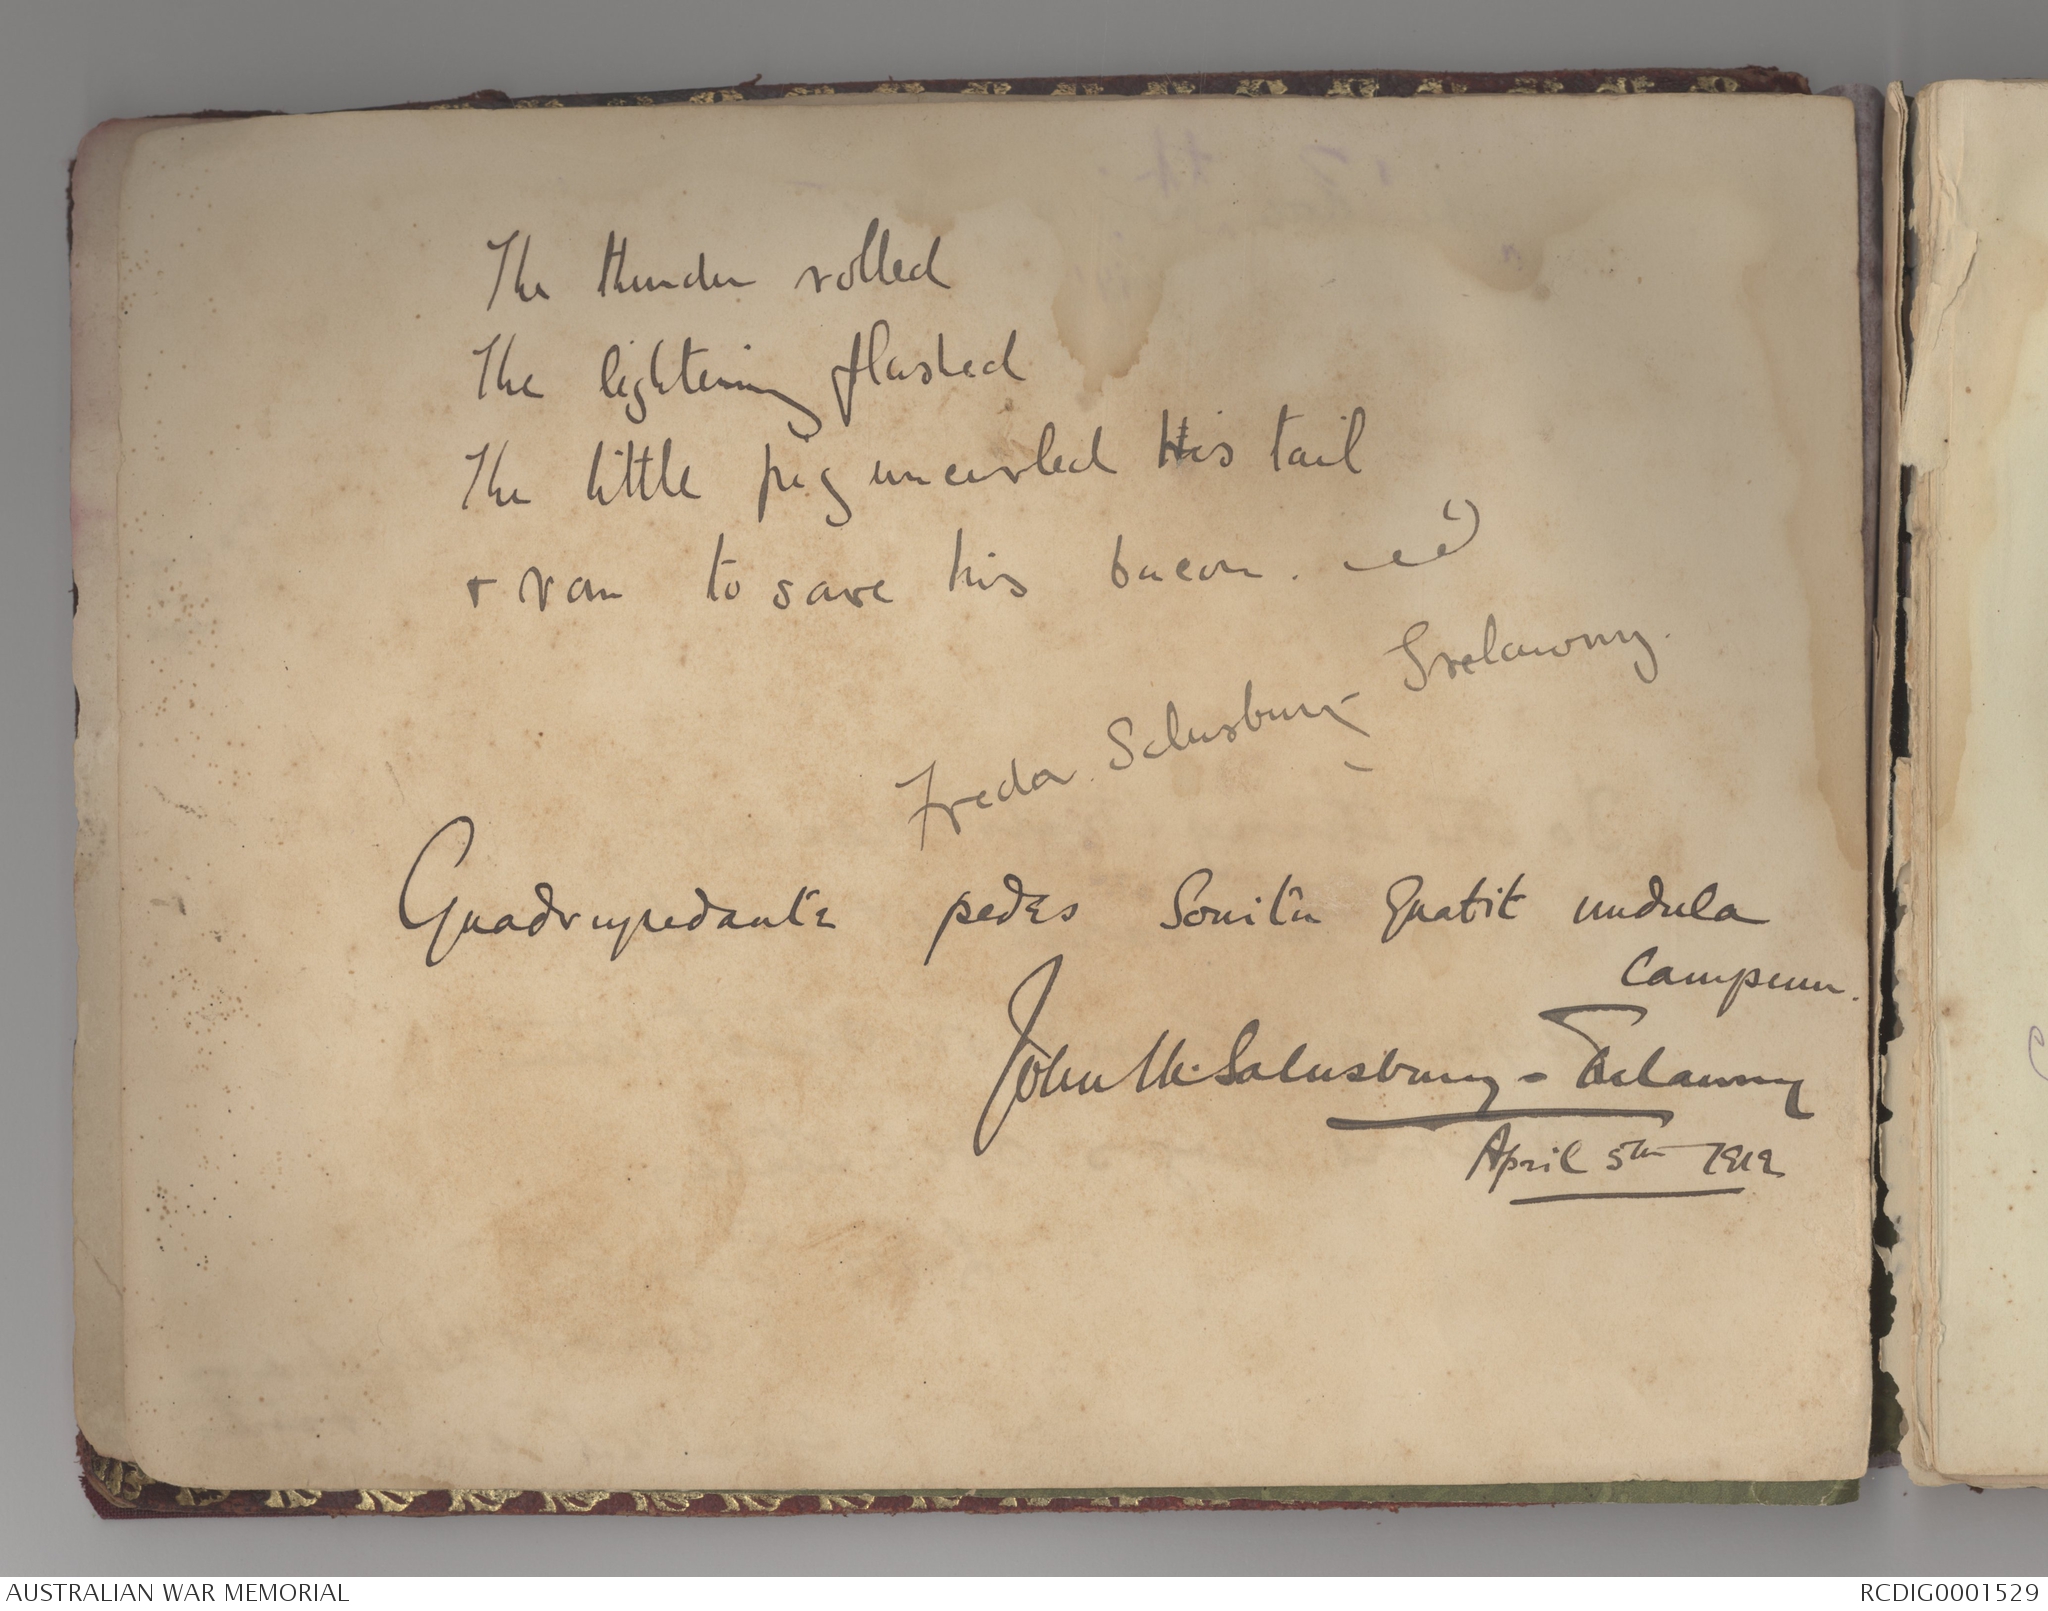 The thunder rolled
The lightening flashed
The little pig uncurled His tail
+ ran to save his bacon.
Freda Salusbury Trelawny.
Quadrupedante pedes Sonitu Quatit undula
Campum.
John M. Salusbury-Trelawny
April 5th 1912
AUSTRALIAN WAR MEMORIAL
RCDIG0001529